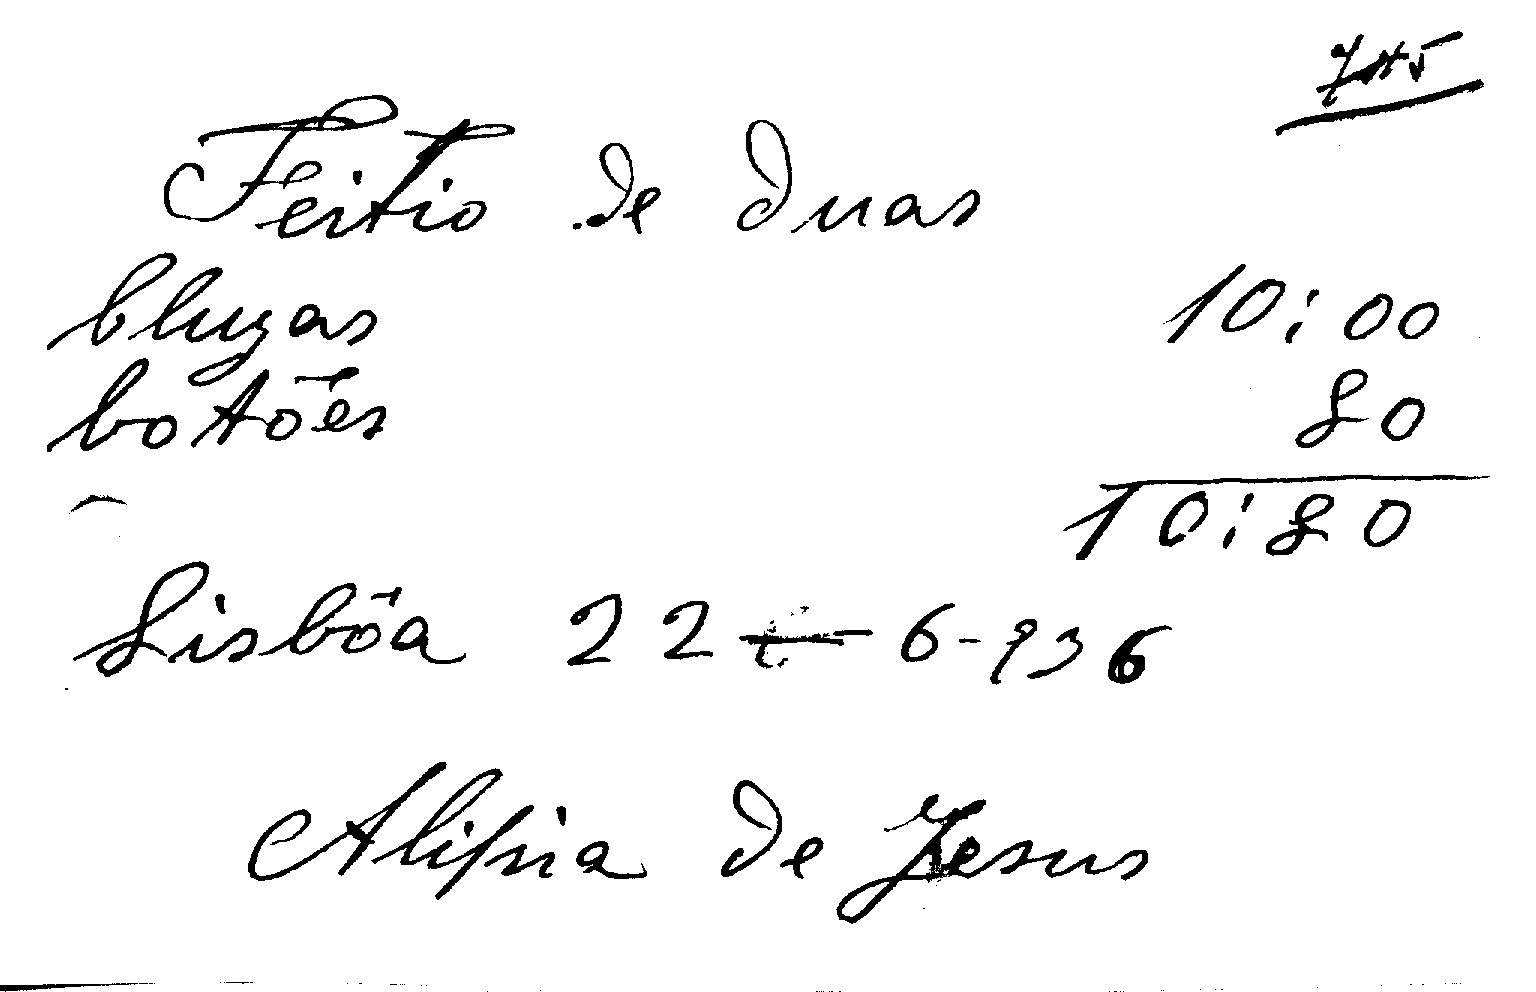 745
Feitio de duas
bluzas 10:00
botões 80
10:80
Lisbôa 22 - 6-936
Alipia de Jesus